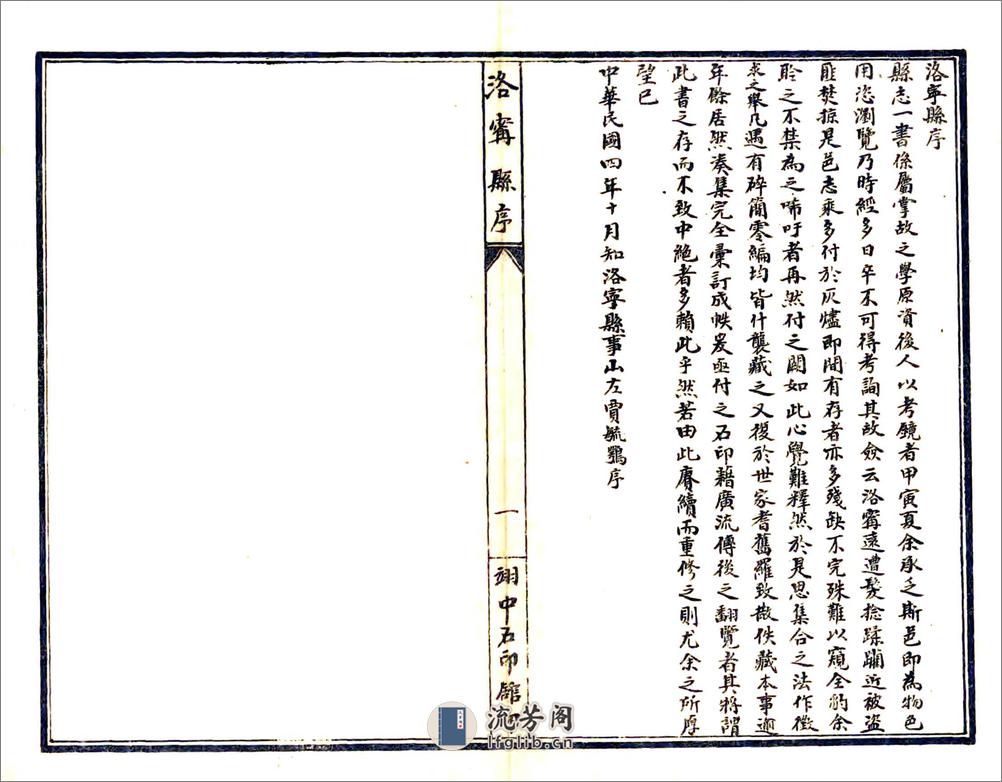 洛寧縣序
縣志一書係屬掌故之學原資後人以考鏡者甲寅夏余承乏斯邑即為物色
用恣瀏覽乃時經多日卒不可得考詢其故僉云洛寧遠遭髮捻蹂躪近被盜
匪焚掠是邑志乘多付於灰燼即間有存者亦多殘缺不完殊難以窺全豹余
聆之不禁為之唏吁者再然付之闕如此心覺難釋然於是思集合之法作徵
求之舉凡遇有碎簡零編均皆什襲藏之又復於世家耆舊羅致散佚藏本事逾
年餘居然湊集完全彙訂成帙爰亟付之石印藉廣流傳後之翻覽者其將謂
此書之存而不致中絕者多賴此乎然若由此賡續而重修之則尤余之所厚
望已
中華民國四年十月知洛寧縣事山左賈毓鶚序
洛寧縣序
一
翊中石印館
流芳阁
lfglib.cn